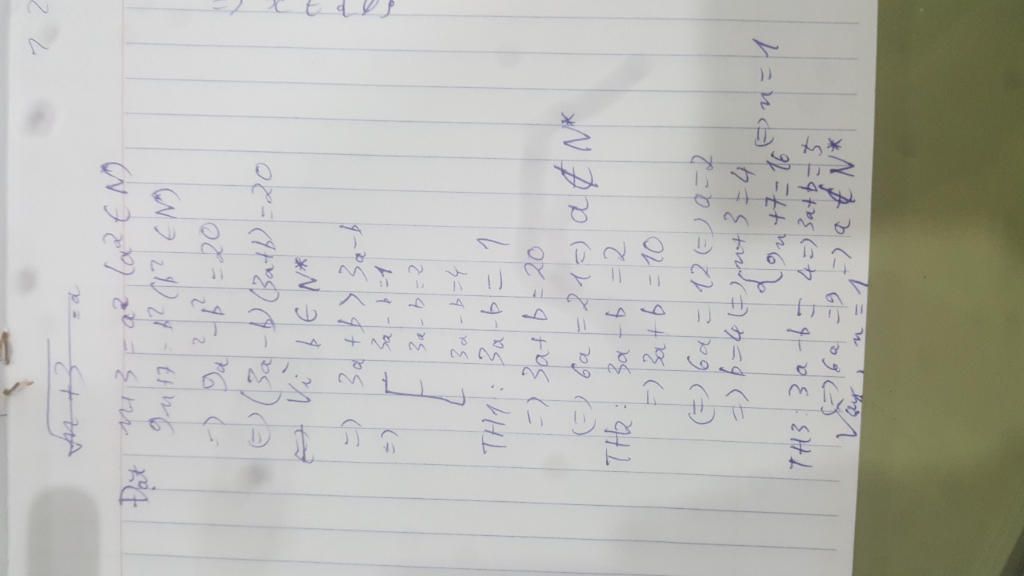 => x ∈
√n+3 = a
Đặt n+3 = a² (a² ∈ N)
9n+7 = b² (b² ∈ N)
=> 9a² - b² = 20
(=) (3a-b)(3a+b) = 20
Vì b ∈ N*
=> 3a+b > 3a-b
=> [ 3a-b=1
3a-b=2
3a-b=4
TH1: 3a-b = 1
=> 3a+b = 20
(=) 6a = 21 => a ∉ N*
TH2: 3a-b = 2
=> 3a+b = 10
(=) 6a = 12 (=) a = 2
=> b = 4 (=) { n+3 = 4
9n+7 = 16 (=) n = 1
TH3: 3a-b = 4 => 3a+b = 5
(=) 6a = 9 => a ∉ N*
Vậy, n = 1